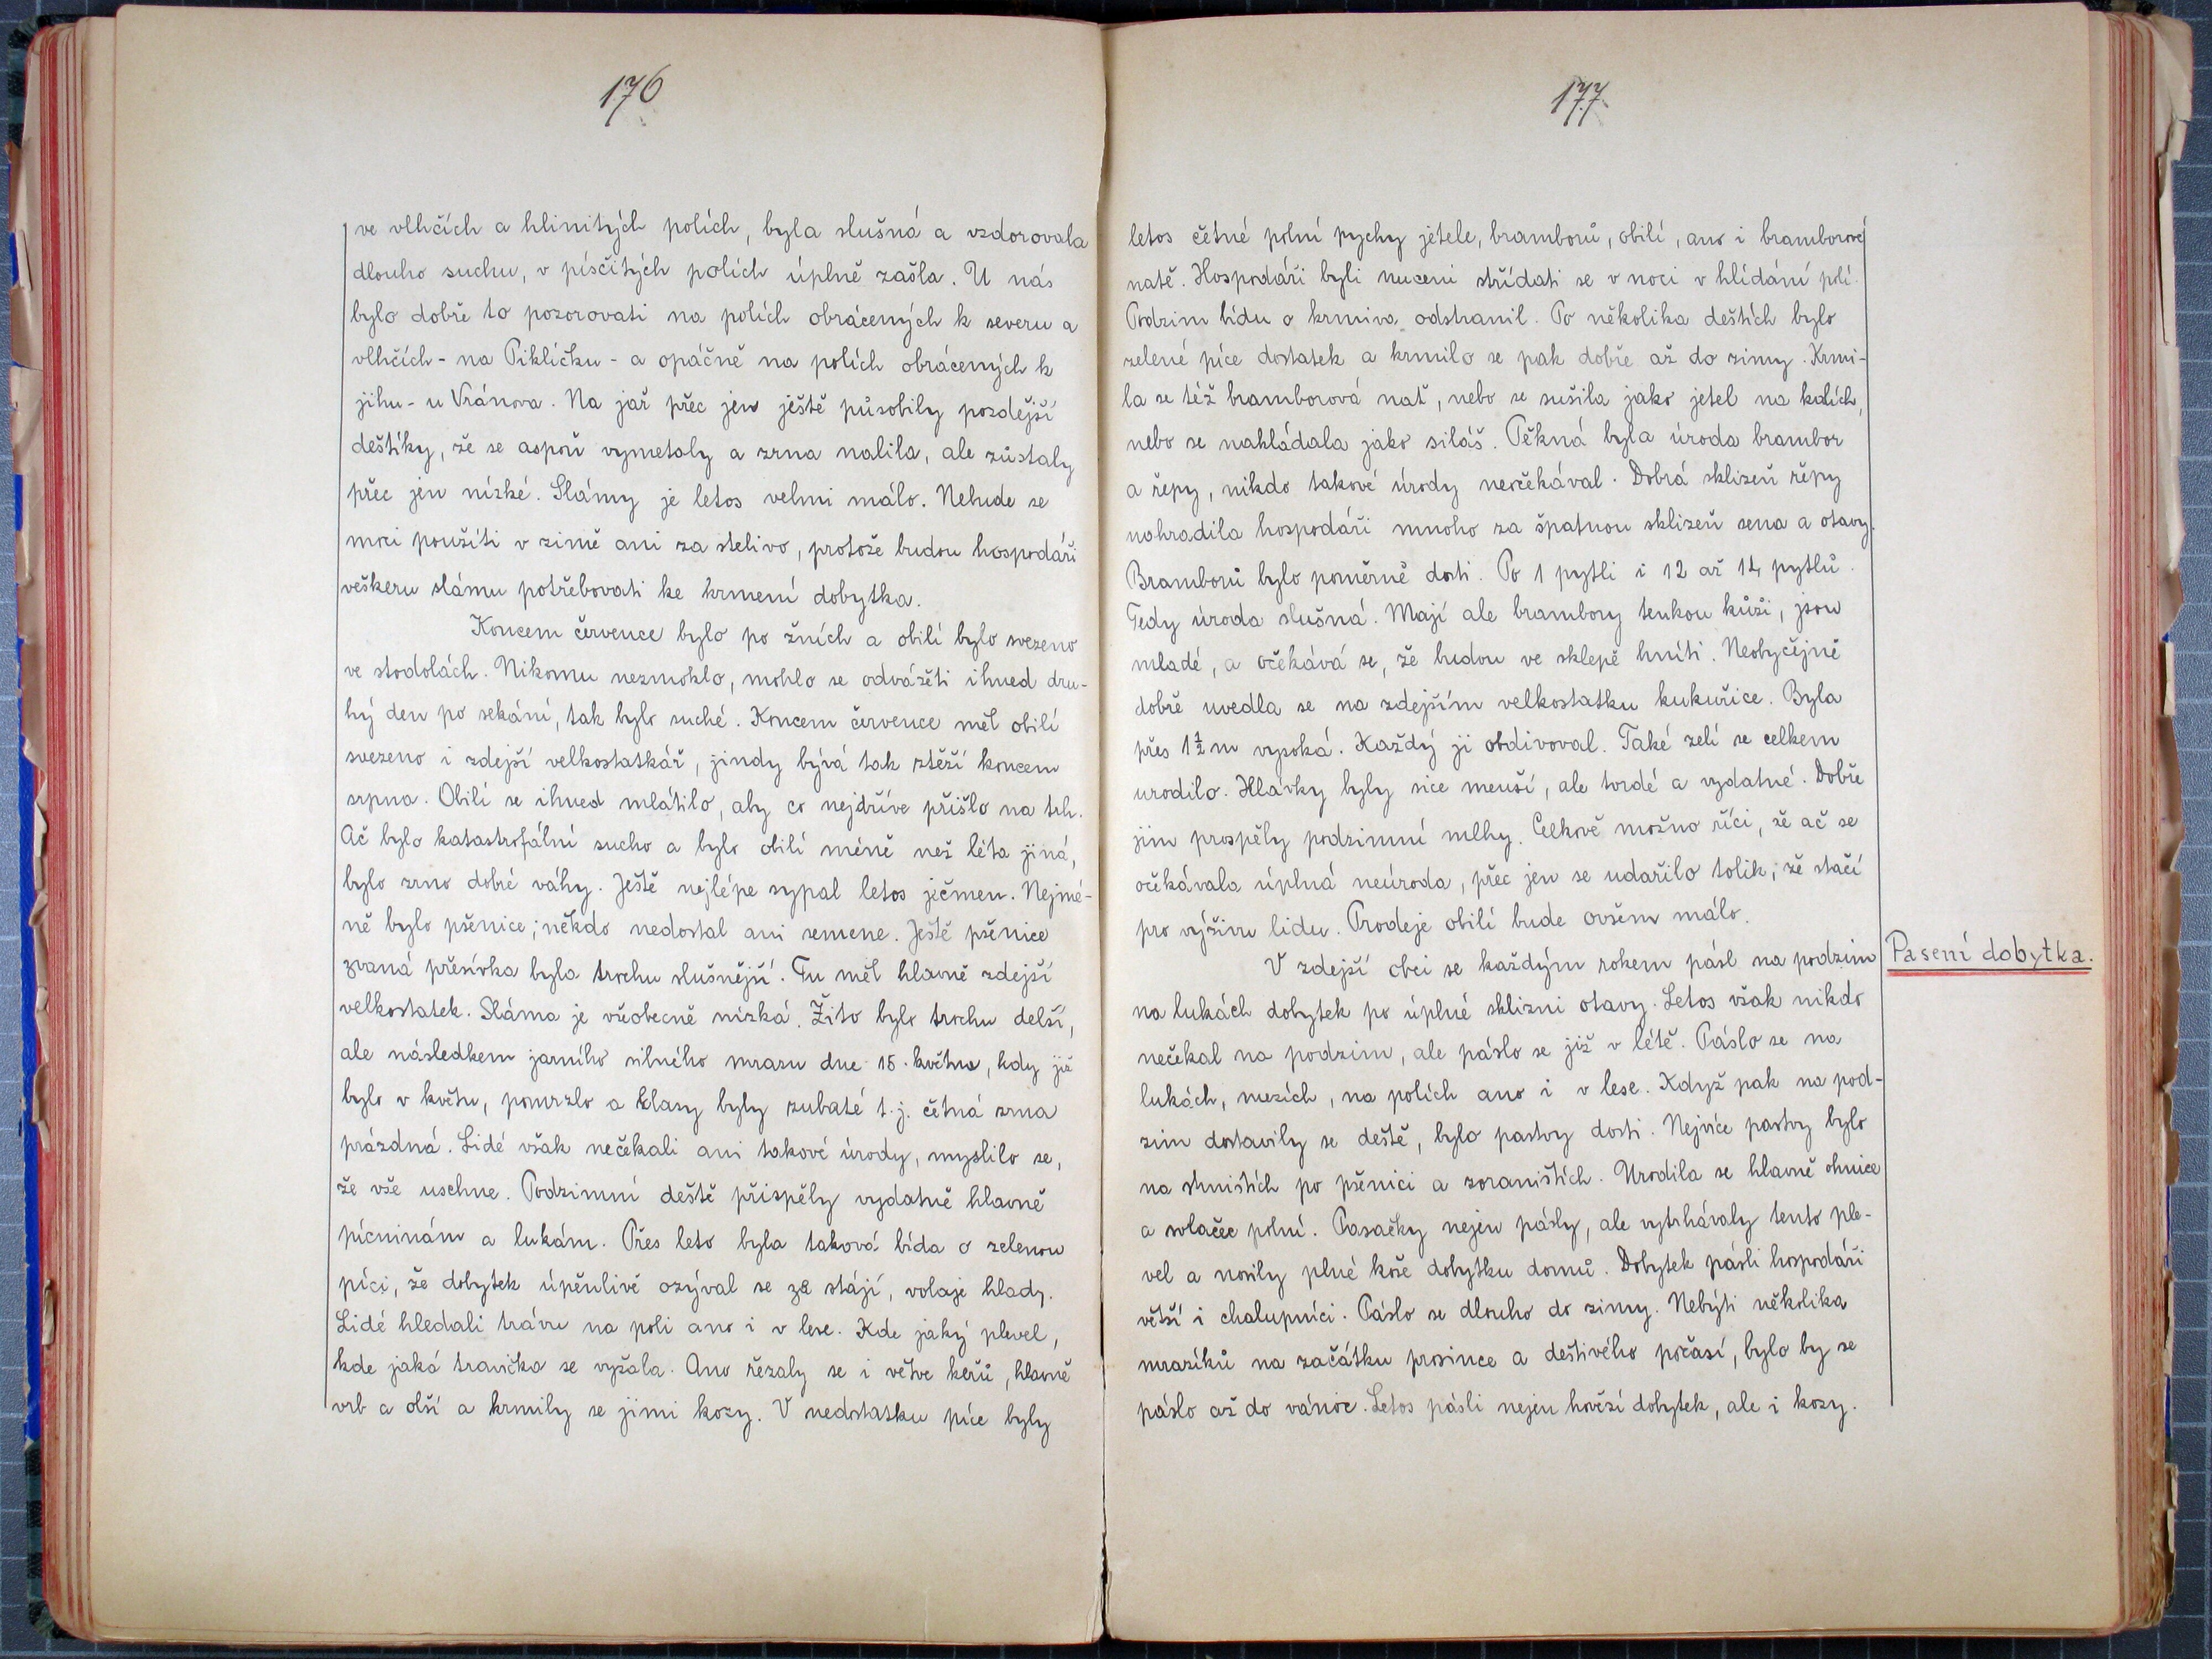 176
ve vlhčích a hlinitých polích, byla slušná a vzdorovala
dlouho suchu, v písčitých polích úplně zašla. U nás
bylo dobře to pozorovati na polích obrácených k severu a
vlhčích - na Piklíčku - a opáčně na polích obrácených k
jihu - u Vránova. Na jař přec jen ještě působily pozdější
deštíky, že se aspoň vymetaly a zrna nalila, ale zůstaly
přec jen nízké. Slámy je letos velmi málo. Nebude se
moci použíti v zimě ani za stelivo, protože budou hospodáři
veškeru slámu potřebovati ke krmení dobytka.
Koncem července bylo po žních a obilí bylo svezeno
ve stodolách. Nikomu nezmoklo, mohlo se odvážeti ihned dru-
hý den po sekání, tak bylo suché. Koncem července měl obilí
svezeno i zdejší velkostatkář, jindy bývá tak stěží koncem
srpna. Obilí se ihned mlátilo, aby co nejdříve přišlo na trh.
Ač bylo katastrofální sucho a bylo obilí méně než léta jiná,
bylo zrno dobré váhy. Ještě nejlépe sypal letos ječmen. Nejmé-
ně bylo pšenice; někdo nedostal ani semene. Ještě pšenice
zvaná přesívka byla trochu slušnější. Tu měl hlavně zdejší
velkostatek. Sláma je všeobecně nízká. Žito bylo trochu delší,
ale následkem jarního silného mrazu dne 15. května, kdy již
bylo v květu, pomrzlo a klasy byly zubaté t.j. četná zrna
prázdná. Lidé však nečekali ani takové úrody, myslilo se,
že vše uschne. Podzimní deště přispěly vydatně hlavně
pícninám a lukám. Přes leto byla taková bída o zelenou
píci, že dobytek úpěnlivě ozýval se ze stájí, volaje hlady.
Lidé hledali trávu na poli ano i v lese. Kde jaký plevel,
kde jaká travička se vyžala. Ano řezaly se i větve keřů, hlavně
vrb a olší a krmily se jimi kozy. V nedostatku píce byly
177
letos četné polní pychy jetele, bramborů, obilí, ano i bramborové
natě. Hospodáři byli nuceni střídati se v noci v hlídání polí.
Podzim bídu o krmivo odstranil. Po několika deštích bylo
zelené píce dostatek a krmilo se pak dobře až do zimy. Krmi-
la se též bramborová nať, nebo se sušila jako jetel na kolích,
nebo se nakládala jako siláš. Pěkná byla úroda brambor
a řepy, nikdo takové úrody neočekával. Dobrá sklizeň řepy
nahradila hospodáři mnoho za špatnou sklizeň sena a otavy.
Bramborů bylo poměrně dosti. Po 1 pytli i 12 až 14 pytlů.
Tedy úroda slušná. Mají ale brambory tenkou kůži, jsou
mladé, a očekává se, že budou ve sklepě hníti. Neobyčejně
dobře uvedla se na zdejším velkostatku kukuřice. Byla
přes 1½ m vysoká. Každý ji obdivoval. Také zelí se celkem
urodilo. Hlávky byly sice menší, ale tvrdé a vydatné. Dobře
jim prospěly podzimní mlhy. Celkově možno říci, že ač se
očekávala úplná neúroda, přec jen se udařilo tolik, že stačí
pro výživu lidu. Prodeje obilí bude ovšem málo.
V zdejší obci se každým rokem pásl na podzim
Pasení dobytka.
na lukách dobytek po úplné sklizni otavy. Letos však nikdo
nečekal na podzim, ale páslo se již v létě. Páslo se na
lukách, mezích, na polích ano i v lese. Když pak na pod-
zim dostavily se deště, bylo pastvy dosti. Nejvíce pastvy bylo
na strništích po pšenici a zoraništích. Urodila se hlavně ohnice
a svlačec polní. Pasačky nejen pásly, ale vytrhávaly tento ple-
vel a nosily plné koše dobytku domů. Dobytek pásli hospodáři
větší i chalupníci. Páslo se dlouho do zimy. Nebýti několika
mrazíků na začátku prosince a deštivého počasí, bylo by se
páslo až do vánoc. Letos pásli nejen hovězí dobytek, ale i kozy.